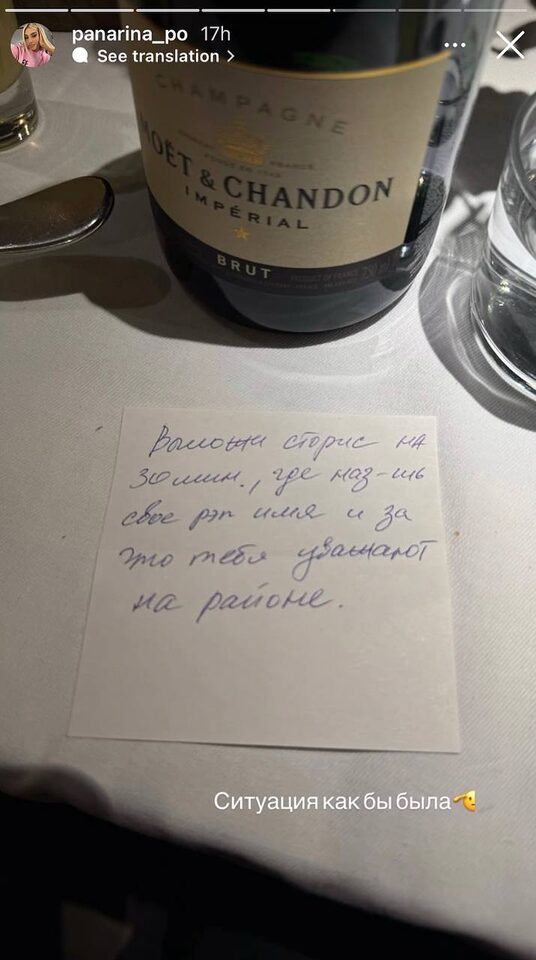 panarina_po 17h
See translation >
CHAMPAGNE
MOËT & CHANDON
IMPÉRIAL
BRUT
Выложи сторис на
30 мин., где наз-шь
свое рэп имя и за
что тебя уважают
на районе.
Ситуация как бы была🫠